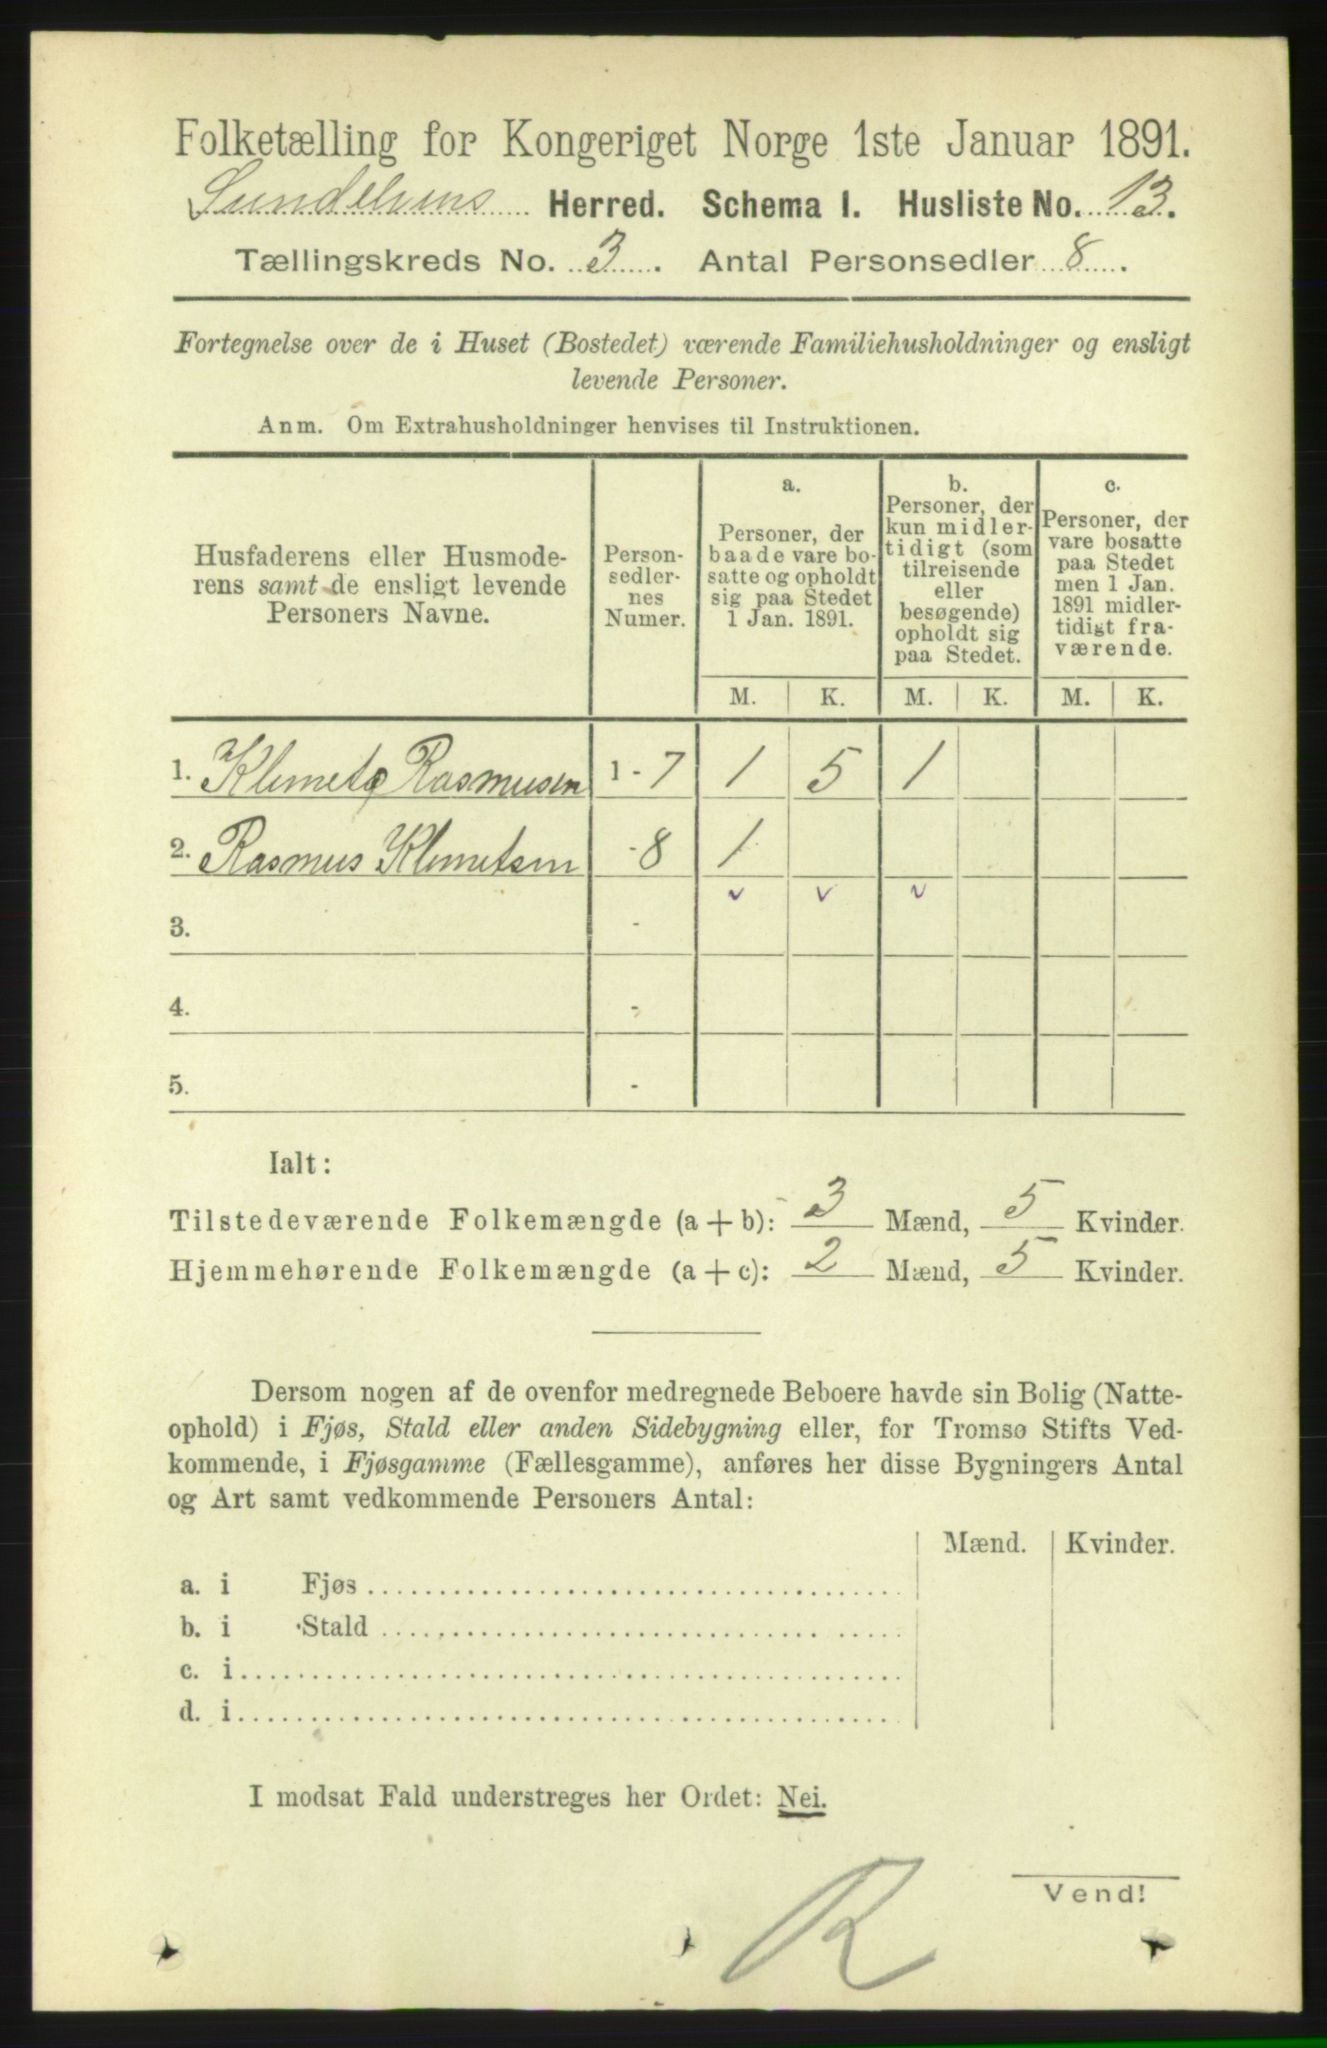 Folketælling for Kongeriget Norge 1ste Januar 1891.
Sundelvens Herred. Schema I. Husliste No. 13.
Tællingskreds No. 3. Antal Personsedler 8.
Fortegnelse over de i Huset (Bostedet) værende Familiehusholdninger og ensligt
levende Personer.
Anm. Om Extrahusholdninger henvises til Instruktionen.
Husfaderens eller Husmode-
rens samt de ensligt levende
Personers Navne.
Person-
sedler-
nes
Numer.
a.
Personer, der
baade vare bo-
satte og opholdt
sig paa Stedet
1 Jan. 1891.
b.
Personer, der
kun midler-
tidigt (som
tilreisende
eller
besøgende)
opholdt sig
paa Stedet.
c.
Personer, der
vare bosatte
paa Stedet
men 1 Jan.
1891 midler-
tidigt fra-
værende.
M. K. M. K. M. K.
1. Klemet Rasmusen 1 - 7 1 5 1
2. Rasmus Klemetsen - 8 1
v v v
3. -
4. -
5. -
Ialt:
Tilstedeværende Folkemængde (a + b): 3 Mænd, 5 Kvinder.
Hjemmehørende Folkemængde (a + c): 2 Mænd, 5 Kvinder.
Dersom nogen af de ovenfor medregnede Beboere havde sin Bolig (Natte-
ophold) i Fjøs, Stald eller anden Sidebygning eller, for Tromsø Stifts Ved-
kommende, i Fjøsgamme (Fællesgamme), anføres her disse Bygningers Antal
og Art samt vedkommende Personers Antal:
Mænd. Kvinder.
a. i Fjøs
b. i Stald
c. i
d. i
I modsat Fald understreges her Ordet: Nei.
Vend!
R